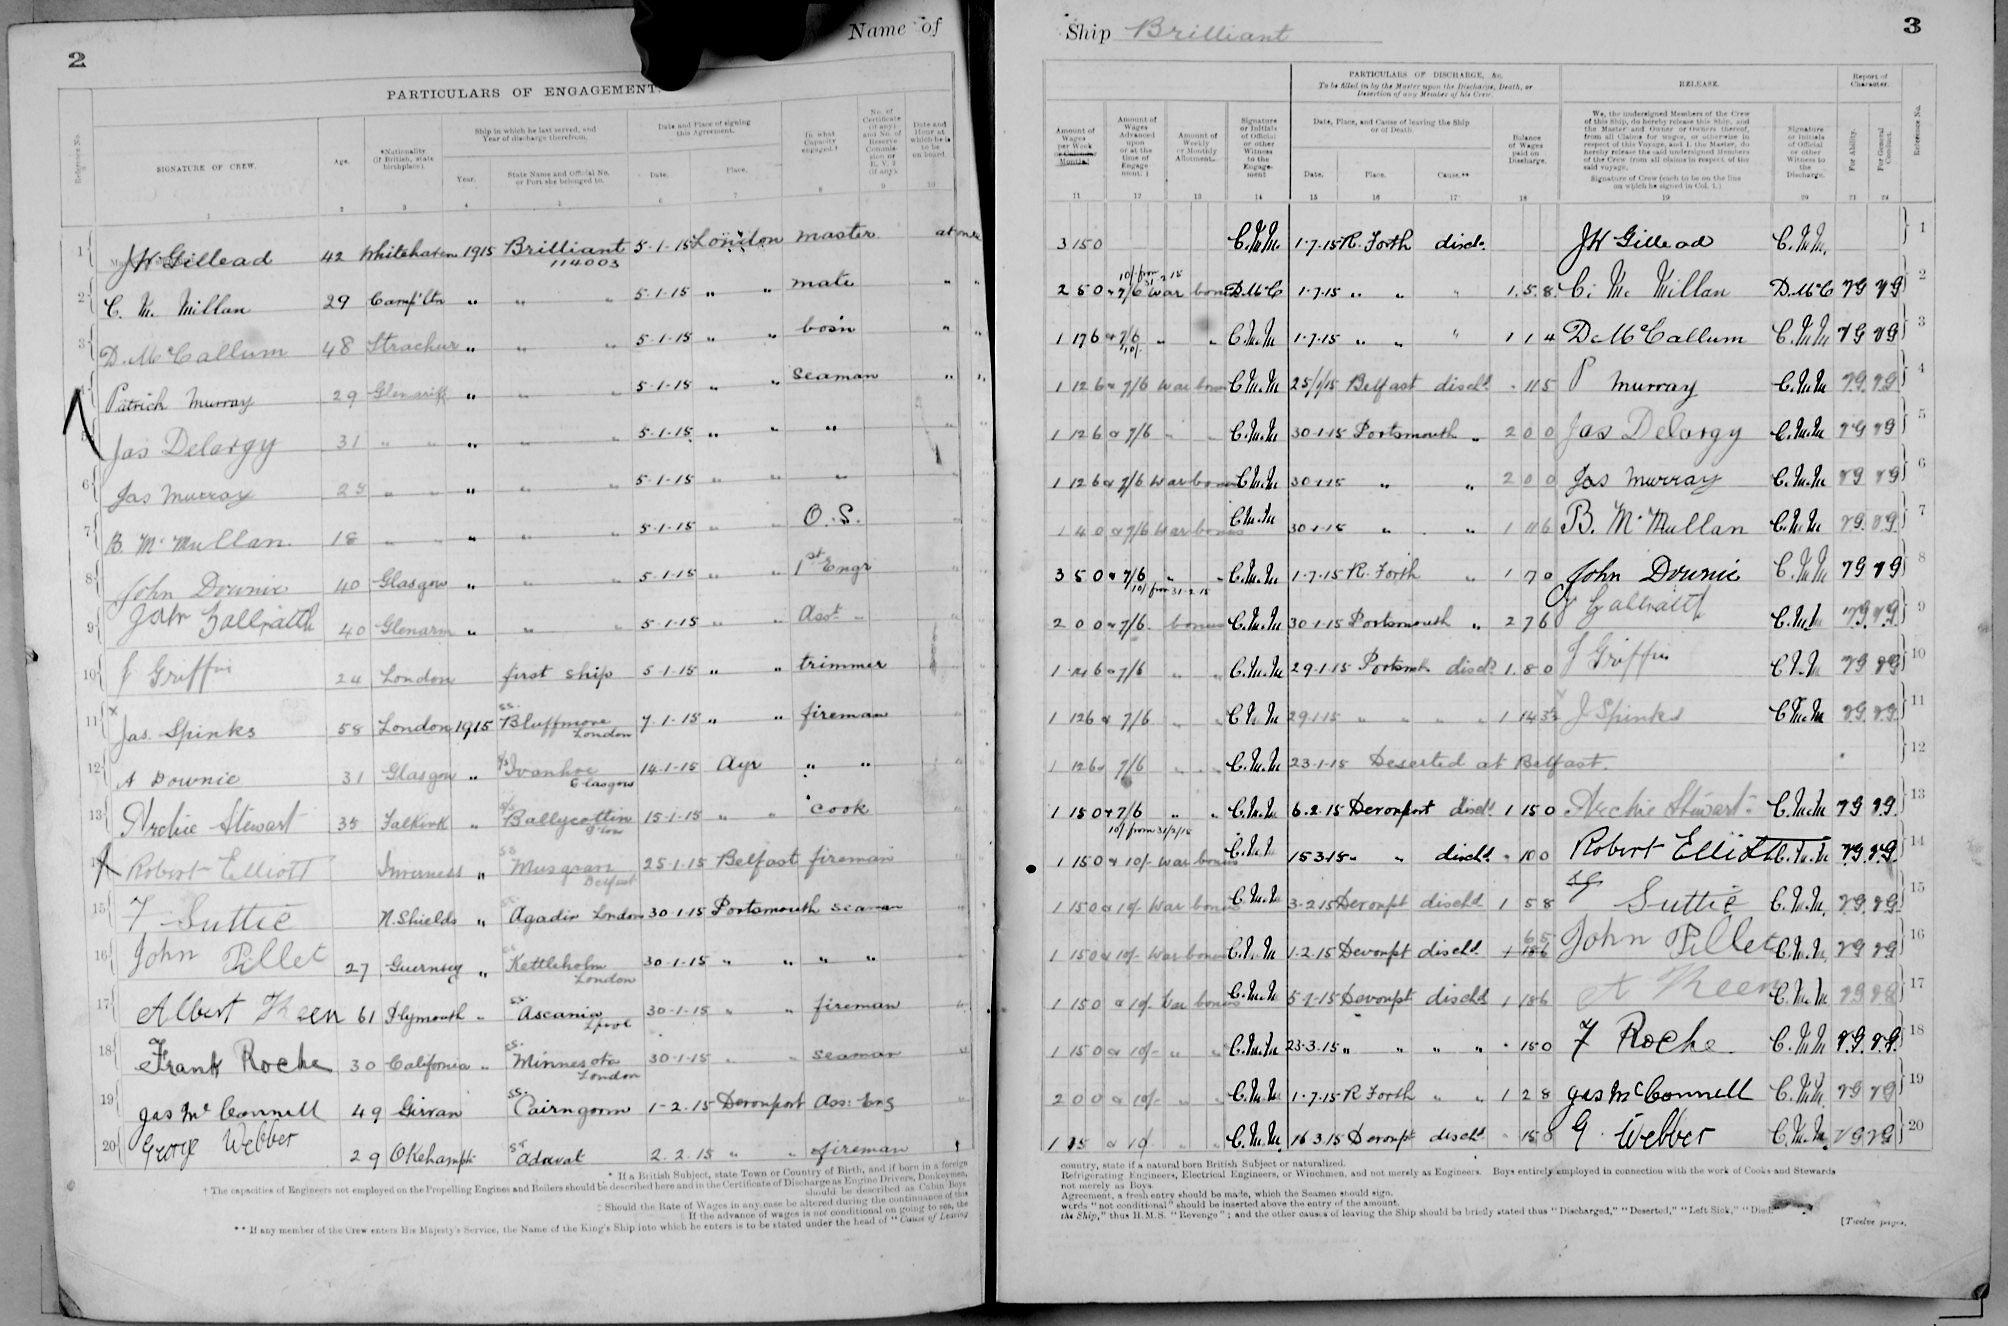 2
Name of
PARTICULARS OF ENGAGEMENT.
Reference No.
SIGNATURE OF CREW.
Age.
*Nationality (If British, state birthplace).
Ship in which he last served, and Year of discharge therefrom.
Year.
State Name and Official No. or Port she belonged to.
Date and Place of signing this Agreement.
Date.
Place.
In what Capacity engaged.†
No. of Certificate (if any), and No. of Reserve Commission or R. V. 2 (if any).
Date and Hour at which he is to be on board.
1 2 3 4 5 6 7 8 9 10
1 JW Gillead 42 Whitehaven 1915 Brilliant 114003 5-1-15 London master at once
2 C. Mc Millan 29 Camp'ltn " " " 5-1-15 " " mate " "
3 D. McCallum 48 Strachur " " " 5-1-15 " " bosn " "
4 Patrick Murray 29 Glenariff " " " 5-1-15 " " seaman " "
5 Jas Delargy 31 " " " " " 5-1-15 " " "
6 Jas Murray 28 " " " " " 5-1-15 " " "
7 B. McMullan 18 " " " " " 5-1-15 " " O.S.
8 John Downie 40 Glasgow " " " 5-1-15 " " 1st Engr
9 John Galbraith 40 Glenarm " " " 5-1-15 " " Asst "
10 J Griffin 24 London first ship 5-1-15 " " trimmer
11 x Jas. Spinks 58 London 1915 ss. Bluffmore London 7-1-15 " " fireman
12 A Downie 31 Glasgow " s/s Ivanhoe Glasgow 14-1-15 Ayr " "
13 Archie Stewart 35 Falkirk " s/s Ballycottin 15-1-15 " " cook
14 Robert Elliott Inverness " ss Belfast 25-1-15 Belfast fireman
15 F Suttie N. Shields " ss Agadir London 30-1-15 Portsmouth seaman
16 John Pillet 27 Guernsey " ss Kettleholm London 30-1-15 " " " "
17 Albert Kreen 61 Plymouth " ss. Ascania Lpool 30-1-15 " " fireman
18 Frank Roche 30 California " ss. Minnesota London 30-1-15 " " seaman
19 Jas McConnell 49 Girvan ss. Cairngorm 1-2-15 Devonport Ass: Eng
20 George Webber 29 Okehampt 2.2.15 " " fireman
* If a British Subject, state Town or Country of Birth, and if born in a foreign
† The capacities of Engineers not employed on the Propelling Engines and Boilers should be described here and in the Certificate of Discharge as Engine Drivers, Donkeymen,
should be described as Cabin Boys
‡ Should the Rate of Wages in any case be altered during the continuance of this
If the advance of wages is not conditional on going to sea, the
** If any member of the Crew enters His Majesty's Service, the Name of the King's Ship into which he enters is to be stated under the head of "Cause of Leaving
Ship Brilliant
3
Amount of Wages per Week or Calendar Month‡
Amount of Wages Advanced upon or at the time of Engagement.
Amount of Weekly or Monthly Allotment.
Signature or Initials of Official or other Witness to the Engagement
PARTICULARS OF DISCHARGE, &c.
To be filled in by the Master upon the Discharge, Death, or Desertion of any Member of his Crew.
Date, Place, and Cause of leaving the Ship or of Death.
Date.
Place.
Cause.**
Balance of Wages paid on Discharge.
RELEASE.
We, the undersigned Members of the Crew of this Ship, do hereby release this Ship, and the Master and Owner or Owners thereof, from all Claims for wages, or otherwise in respect of this Voyage, and I, the Master, do hereby release the said undersigned Members of the Crew from all claims in respect of the said voyage.
Signature of Crew (each to be on the line on which he signed in Col. 1.)
Signature or Initials of Official or other Witness to the Discharge.
Report of Character.
For Ability.
For General Conduct.
Reference No.
11 12 13 14 15 16 17 18 19 20 21 22
3 15 0 C.McM. 1-7-15 R. Forth disch. JW Gillead C.McM. 1
2 5 0 & 7/6 war bonus D.McC 1-7-15 " " " 1. 5. 8. C. Mc Millan D.McC VG VG 2
1 17 6 & 7/6 10/- " " C.McM 1-7-15 " " " 1 1 4 D. McCallum C.McM VG VG 3
1 12 6 & 7/6 war bonus C.McM 25/1/15 Belfast dischd - 11 5 P Murray C.McM V.G. V.G. 4
1 12 6 & 7/6 " " C.McM 30-1-15 Portsmouth " 2 0 0 Jas Delargy C.McM VG VG 5
1 12 6 & 7/6 war bonus C.McM 30-1-15 " " 2 0 0 Jas Murray C.McM VG VG 6
1 4 0 & 7/6 war bonus C.McM 30-1-15 " " 1 11 6 B. McMullan C.McM VG. VG. 7
3 5 0 & 7/6 " " C.McM 1-7-15 R. Forth " 1 7 0 John Downie C.McM VG VG 8
2 0 0 & 7/6 bonus C.McM 30-1-15 Portsmouth " 2 7 6 J Galbraith C.McM VG VG 9
1 12 6 & 7/6 " " C.McM 29-1-15 Portsmth dischd 1. 8 0 J Griffin C.McM VG VG 10
1 12 6 & 7/6 " " C.McM 29-1-15 " " " " 1 14 J Spinks C.McM VG. VG. 11
1 12 6 & 7/6 " " C.McM 23-1-15 Deserted at Belfast. 12
1 15 0 & 7/6 " " C.McM 6.2.15 Devonport dischd 1 15 0 Archie Stewart C.McM VG VG. 13
1 15 0 & 10/- war bonus C.McM 15-3-15 " " dischd - 10 0 Robert Elliott C.McM V.G. V.G. 14
1 15 0 & 10/- war bonus C.McM 3-2-15 Devonpt dischd 1 5 8 Suttie C.McM. V.G. V.G. 15
1 15 0 & 10/- war bonus C.McM 1-2-15 Devonpt dischd John Pillet C.McM VG VG 16
1 15 0 & 10/- war bonus C.McM Devonpt dischd 1 18 6 A Kreen C.McM VG VG 17
1 15 0 & 10/- " " C.McM 23-3-15 " " " " - 15 0 F Roche C.McM V.G. V.G. 18
2 0 0 & 10/- " " C.McM 1-7-15 R Forth " " 1 2 8 Jas McConnell C.McM VG VG 19
1 15 & 10/- " " C.McM 16.3.15 Devonpt dischd - 15 0 G. Webber C.McM VG VG 20
country, state if a natural born British Subject or naturalized.
Refrigerating Engineers, Electrical Engineers, or Winchmen, and not merely as Engineers. Boys entirely employed in connection with the work of Cooks and Stewards
not merely as Boys.
Agreement, a fresh entry should be made, which the Seamen should sign.
words "not conditional" should be inserted above the entry of the amount.
the Ship," thus H.M.S. "Revenge"; and the other causes of leaving the Ship should be briefly stated thus "Discharged," "Deserted," "Left Sick," "Died."
[Twelve pages.